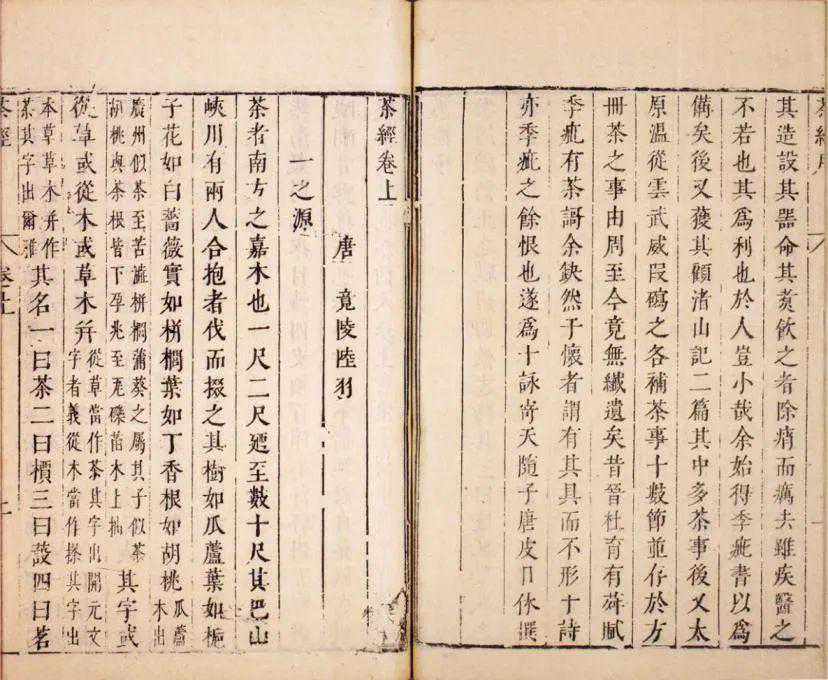 其造設其器命其煑飲之者除痟而癘去雖疾醫之
不若也其爲利也於人豈小哉余始得季疵書以爲
備矣後又獲其顧渚山記二篇其中多茶事後又太
原溫從雲武威段之各補茶事十數節並存於方
冊茶之事由周至今竟無纖遺矣昔晉杜育有荈賦
季疵有茶謌余缺然于懷者謂有其具而不形于詩
亦季疵之餘恨也遂爲十詠寄天隨子唐皮日休譔
茶經卷上
唐 竟陵陸羽
一之源
茶者南方之嘉木也一尺二尺廼至數十尺其巴山
峽川有兩人合抱者伐而掇之其樹如瓜蘆葉如梔
子花如白薔薇實如栟櫚葉如丁香根如胡桃 瓜蘆木出
廣州似茶至苦澁栟櫚蒲葵之屬其子似茶胡桃與茶根皆下孕兆至瓦礫苗木上抽 其字或
從草或從木或草木并 從草當作茶其字出開元文字者義從木當作搽其字出
本草草木并作荼其字出爾雅 其名一曰茶二曰檟三曰蔎四曰茗
茶經 卷上